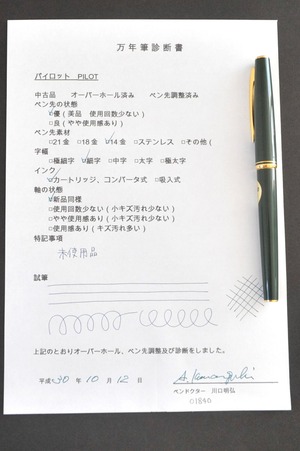 万年筆診断書
パイロット PILOT
中古品 オーバーホール済み ペン先調整済み
ペン先の状態
☑優(美品 使用回数少ない)
□良(やや使用感あり)
ペン先素材
□21金 □18金 ☑14金 □ステンレス □その他(
字幅
□極細字 ☑細字 □中字 □太字 □極太字
インク
☑カートリッジ、コンバータ式 □吸入式
軸の状態
☑新品同様
□使用回数少ない(小キズ汚れ少ない)
□やや使用感あり(小キズ汚れ少ない)
□使用感あり(キズ汚れ多い)
特記事項
未使用品
試筆
上記のとおりオーバーホール、ペン先調整及び診断をしました。
平成30年10月12日
ペンドクター 川口明弘
01840